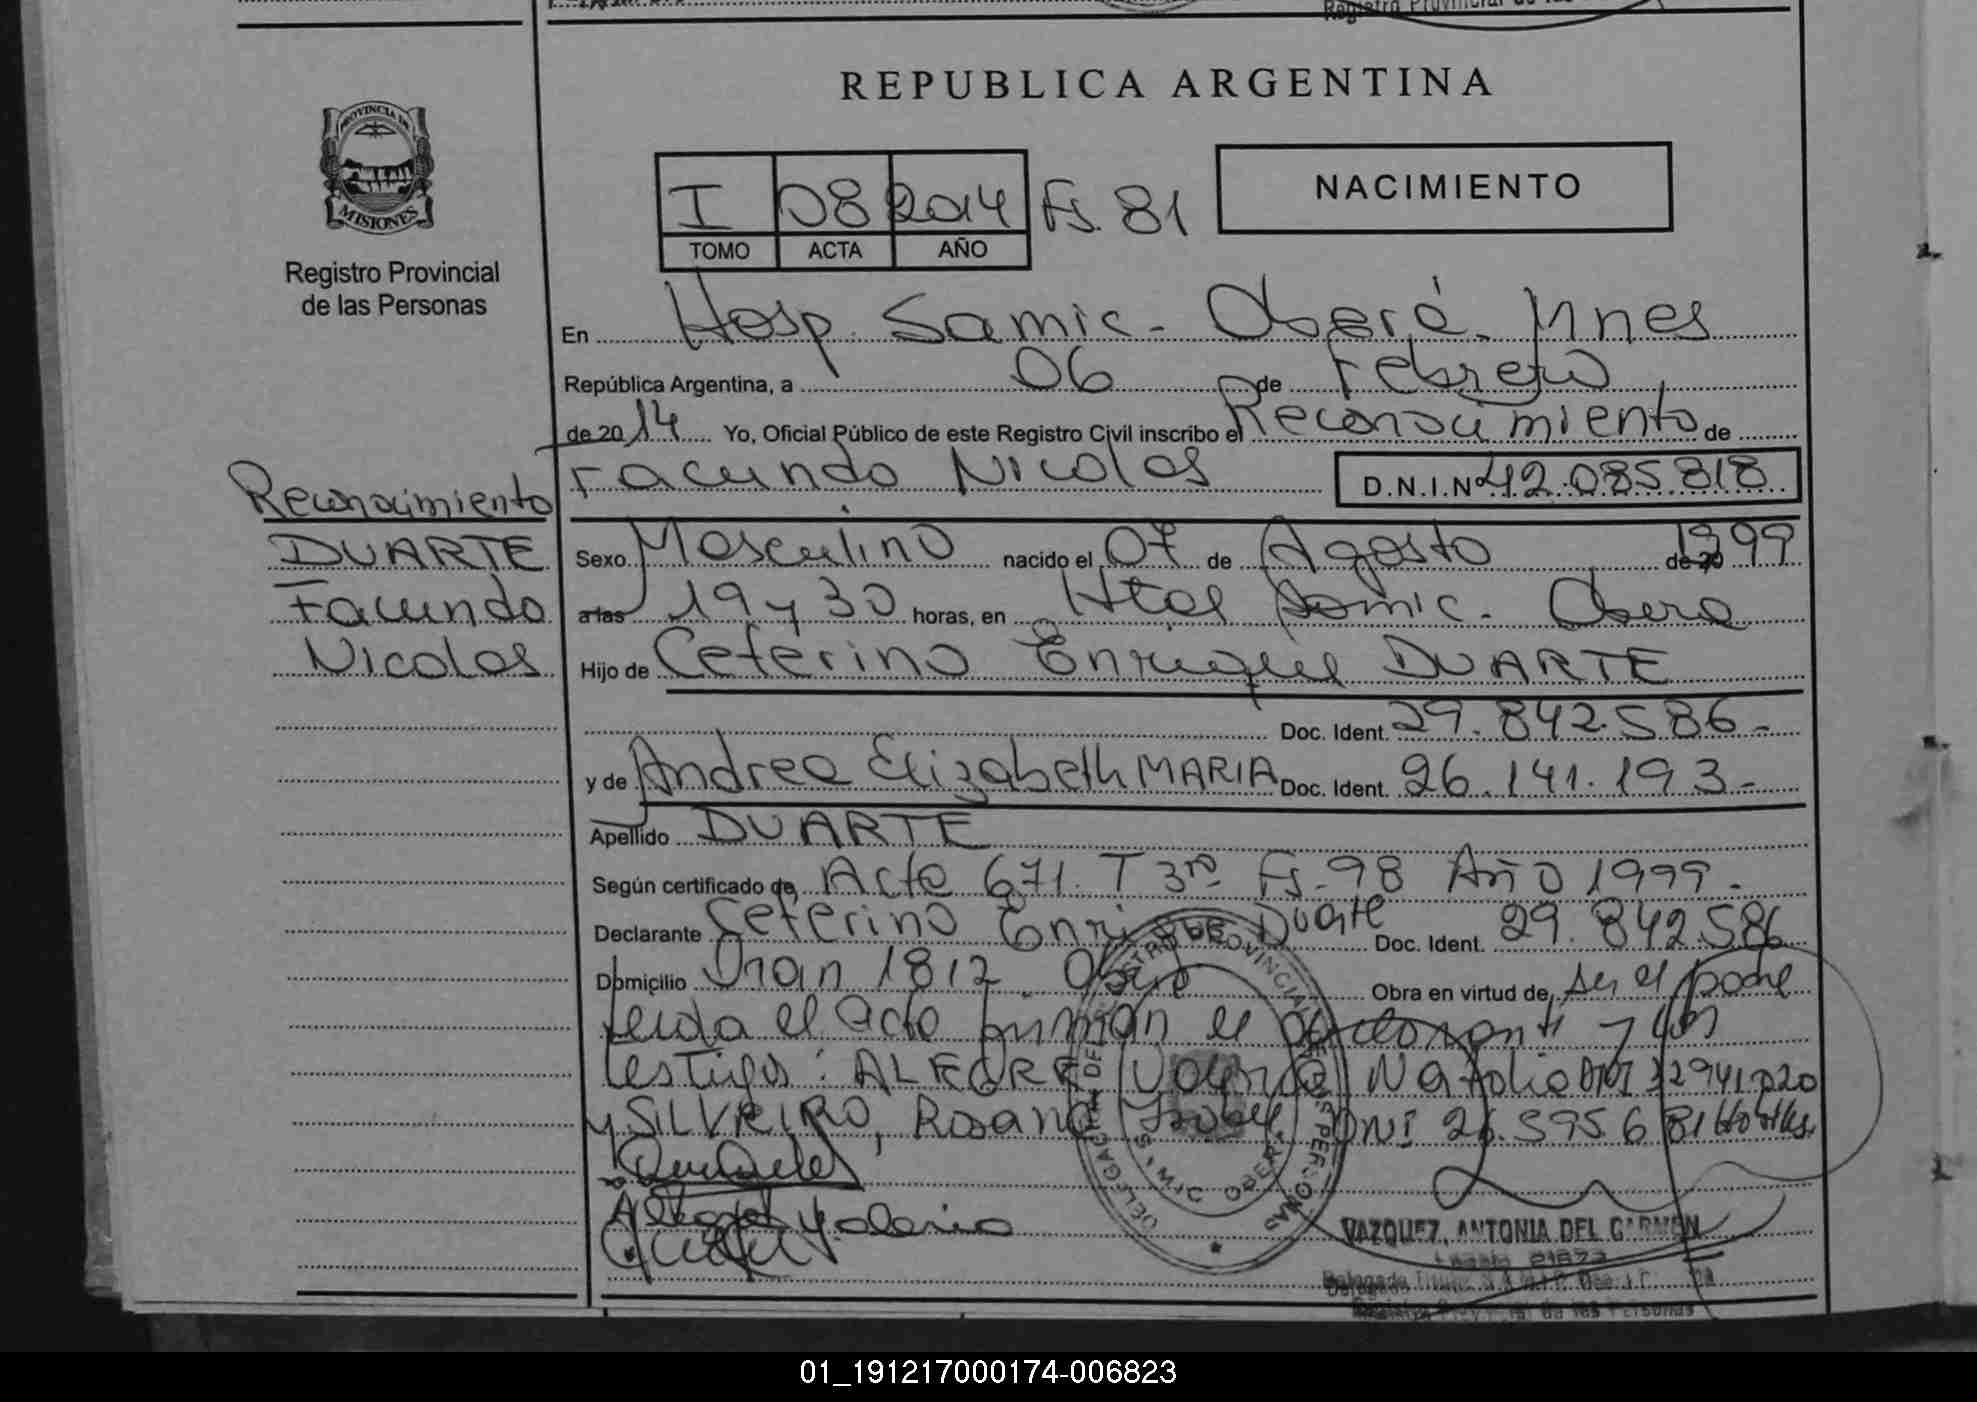 REPUBLICA ARGENTINA
PROVINCIA DE
MISIONES
Registro Provincial
de las Personas
I 08 2014 Fs. 81
TOMO ACTA AÑO
NACIMIENTO
En Hosp. Samic - Oberá. Mnes
República Argentina, a 06 de Febrero
de 2014 Yo, Oficial Público de este Registro Civil inscribo el Reconocimiento de
Facundo Nicolas D.N.I.Nº 42.085.818
Reconocimiento
DUARTE
Facundo
Nicolas
Sexo Masculino nacido el 07 de Agosto de 20 1999
a las 19 y 30 horas, en Htal Samic - Obera
Hijo de Ceferino Enrique DUARTE
Doc. Ident. 29.842.586-
y de Andrea Elizabeth MARIA Doc. Ident. 26.141.193-
Apellido DUARTE
Según certificado de Acta 671. T 3ro Fs - 98 Año 1999.
Declarante Ceferino Enrique Duarte Doc. Ident. 29.842.586
Domicilio Oran 1812 Obera Obra en virtud de ser el padre
Leida el acta firman el declarante y los
testigos: ALEGRE Valeria Natalia DNI 32941020
y SILVEIRO, Rosana Isabel DNI 26.595.681
Alegre Valeria
VAZQUEZ, ANTONIA DEL CARMEN
Registro Provincial de las Personas
01_191217000174-006823